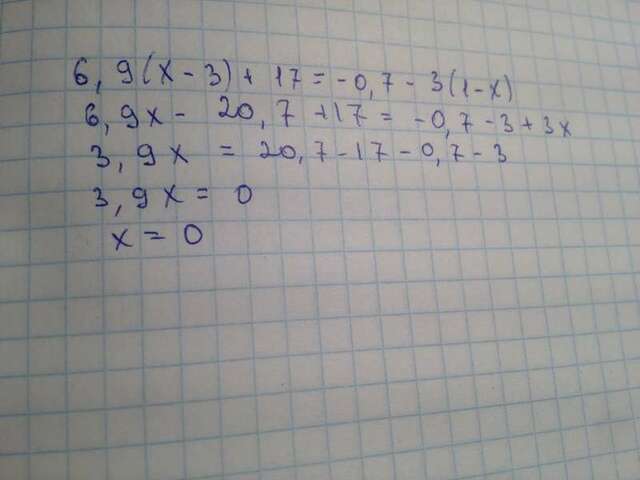 6,9(x-3)+17=-0,7-3(1-x)
6,9x-20,7+17=-0,7-3+3x
3,9x=20,7-17-0,7-3
3,9x=0
x=0